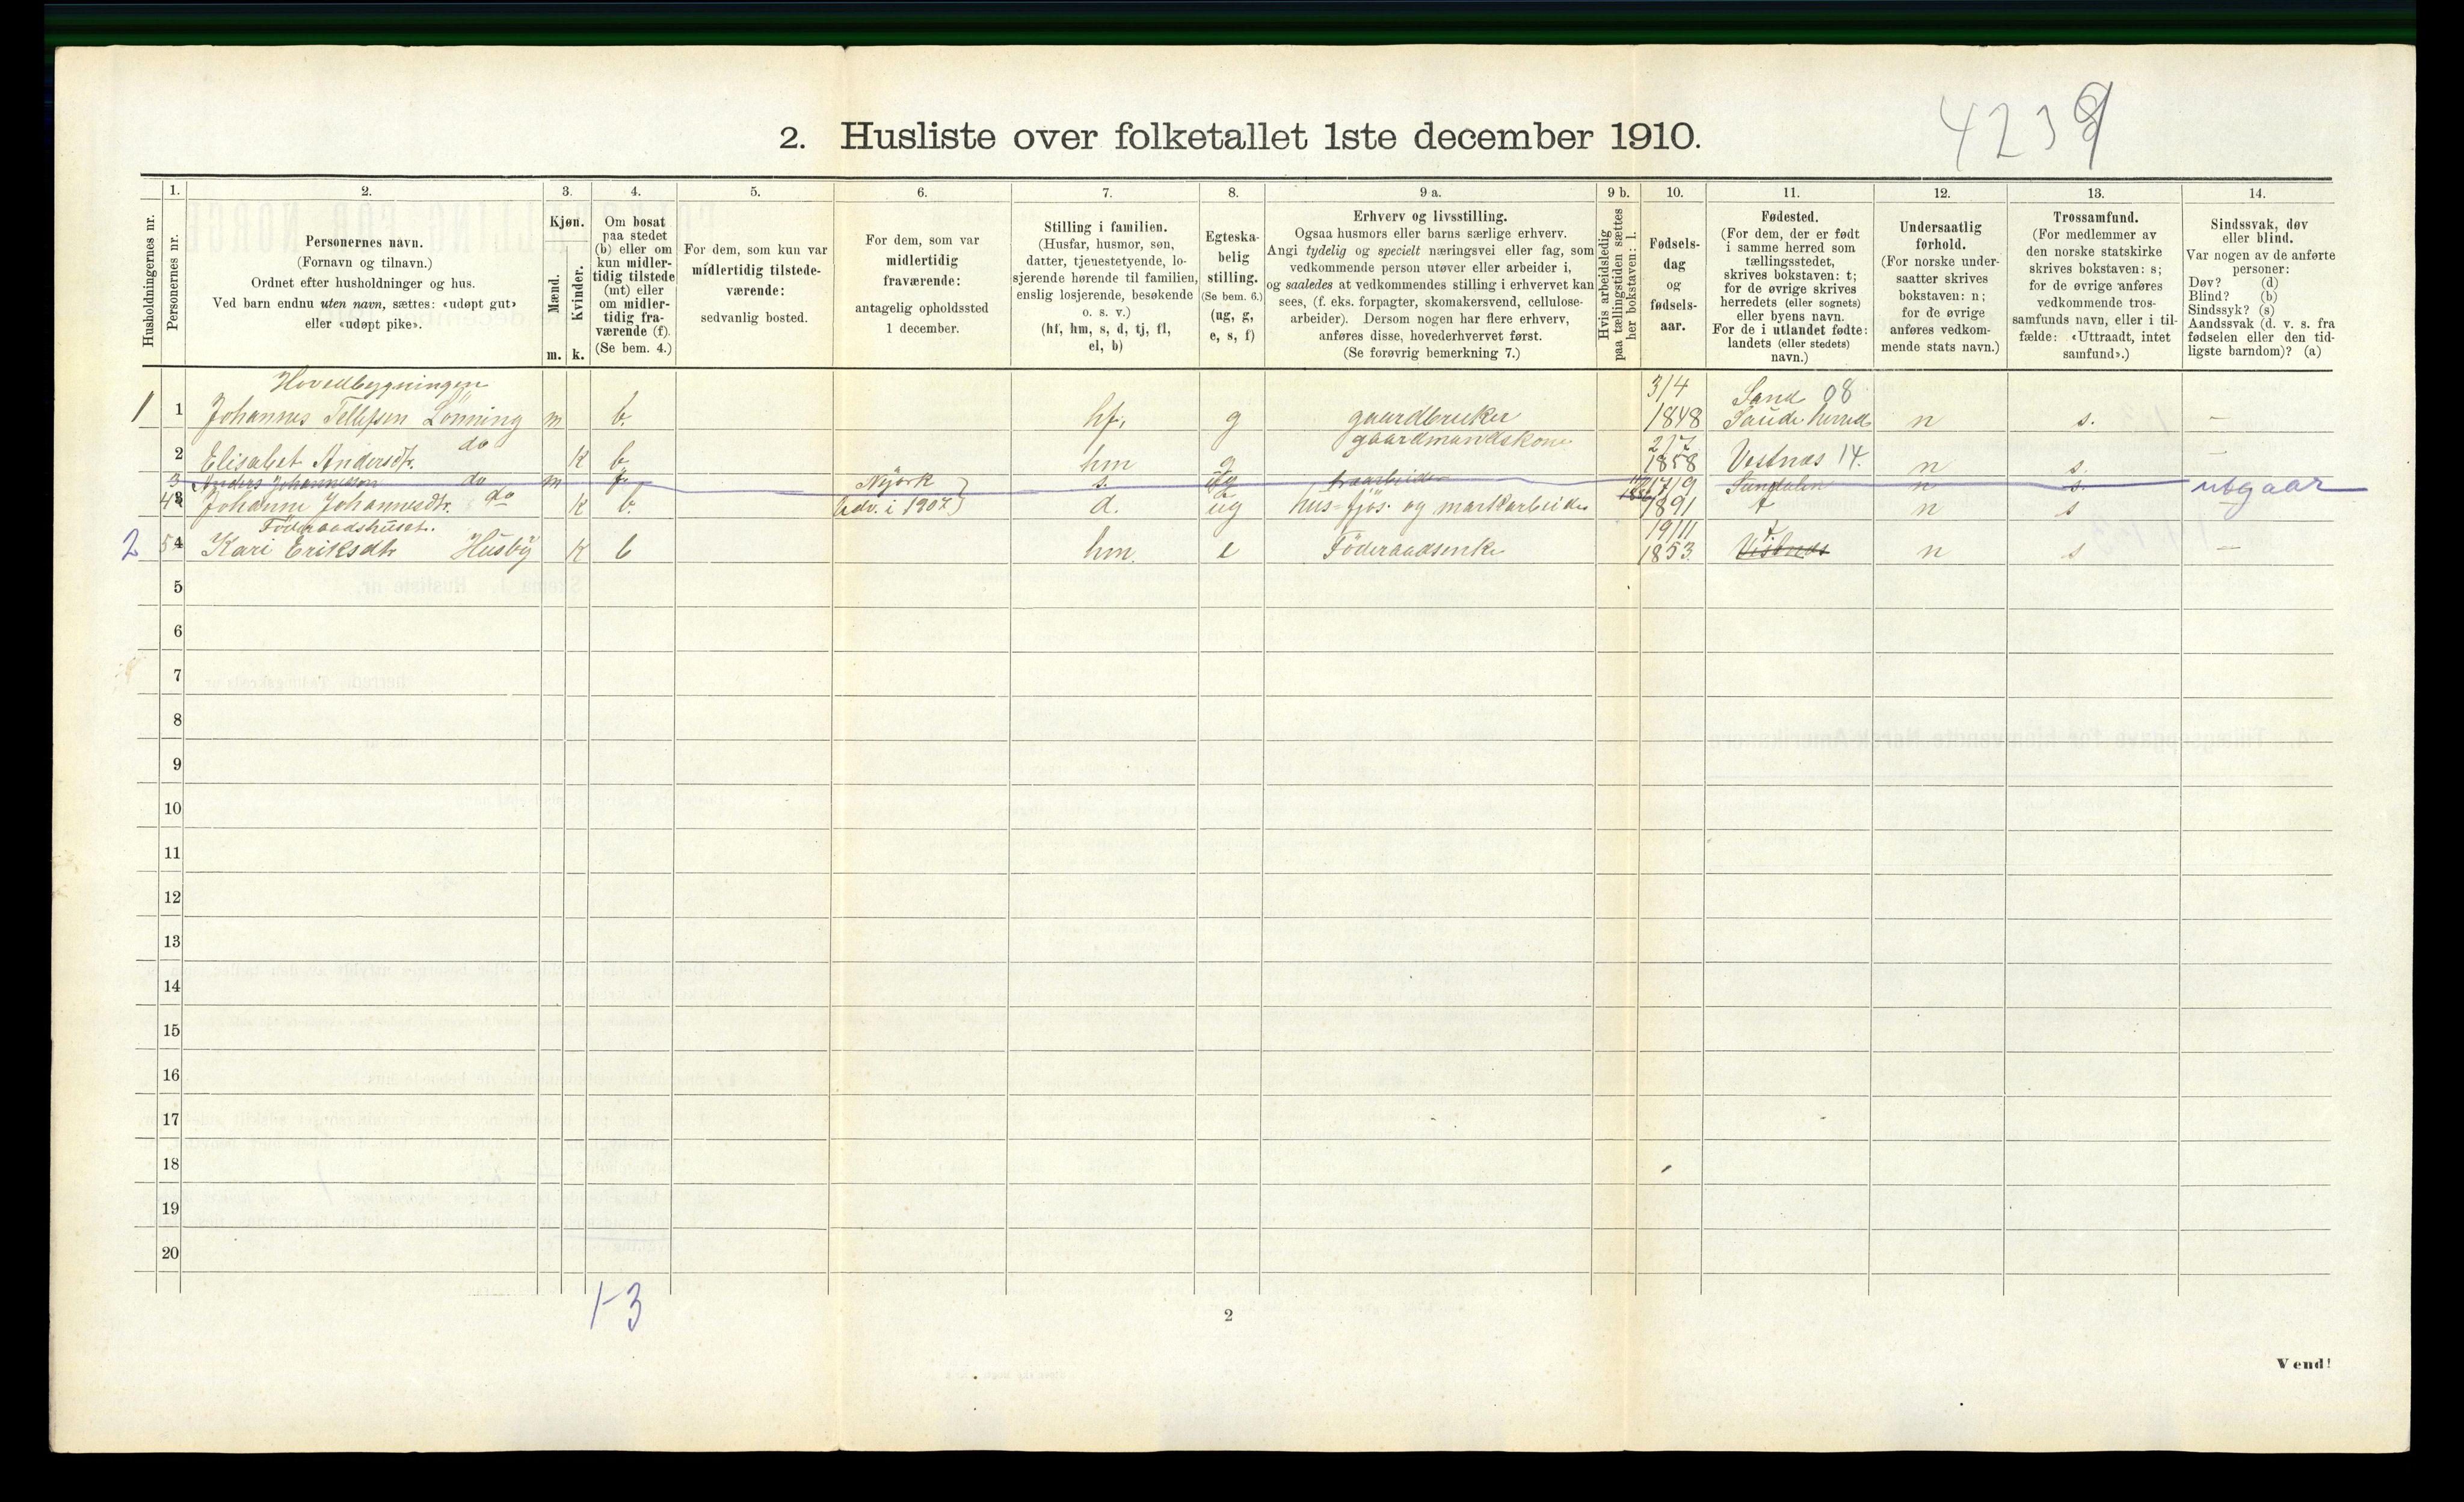 4239
2. Husliste over folketallet 1ste december 1910.
Husholdningernes nr.
1. Personernes nr.
2. Personernes navn. (Fornavn og tilnavn.) Ordnet efter husholdninger og hus. Ved barn endnu uten navn, sættes: «udøpt gut» eller «udøpt pike».
3. Kjøn. Mænd. m. Kvinder. k.
4. Om bosat paa stedet (b) eller om kun midlertidig tilstede (mt) eller om midlertidig fraværende (f). (Se bem. 4.)
5. For dem, som kun var midlertidig tilstedeværende: sedvanlig bosted.
6. For dem, som var midlertidig fraværende: antagelig opholdssted 1 december.
7. Stilling i familien. (Husfar, husmor, søn, datter, tjenestetyende, losjerende hørende til familien, enslig losjerende, besøkende o. s. v.) (hf, hm, s, d, tj, fl, el, b)
8. Egteskabelig stilling. (Se bem. 6.) (ug, g, e, s, f)
9 a. Erhverv og livsstilling. Ogsaa husmors eller barns særlige erhverv. Angi tydelig og specielt næringsvei eller fag, som vedkommende person utøver eller arbeider i, og saaledes at vedkommendes stilling i erhvervet kan sees, (f. eks. forpagter, skomakersvend, cellulosearbeider). Dersom nogen har flere erhverv, anføres disse, hovederhvervet først. (Se forøvrig bemerkning 7.)
9 b. Hvis arbeidsledig paa tællingstiden sættes her bokstaven: l.
10. Fødselsdag og fødselsaar.
11. Fødested. (For dem, der er født i samme herred som tællingsstedet, skrives bokstaven: t; for de øvrige skrives herredets (eller sognets) eller byens navn. For de i utlandet fødte: landets (eller stedets) navn.)
12. Undersaatlig forhold. (For norske undersaatter skrives bokstaven: n; for de øvrige anføres vedkommende stats navn.)
13. Trossamfund. (For medlemmer av den norske statskirke skrives bokstaven: s; for de øvrige anføres vedkommende trossamfunds navn, eller i tilfælde: «Uttraadt, intet samfund».)
14. Sindssvak, døv eller blind. Var nogen av de anførte personer: Døv? (d) Blind? (b) Sindssyk? (s) Aandssvak (d. v. s. fra fødselen eller den tidligste barndom)? (a)
Hovedbygningen
1 1 Johannes Tellefsen Lönning m b. hf. g gaardbruker 3/4 1848 Sand 08 Saude herred n s. —
2 Elisabet Andersdtr. do k b hm g gaardmandskone 2/7 1858 Vestnæs 14. n s. —
3 Anders Johannessen do m f. Nÿork s. ug 1886 Sundalen n s. utgaar
4 3 Johanne Johannesdtr. do k b. Udv. i 1907 d. ug hus- fjøs- og markarbeider 17/9 1891 t n s
Föderaadshuset.
2 5 4 Kari Eriksdtr Husbÿ k b hm. e Föderaadsenke 19/11 1853. t n s —
5
6
7
8
9
10
11
12
13
14
15
16
17
18
19
20
1-3
2
Vend!